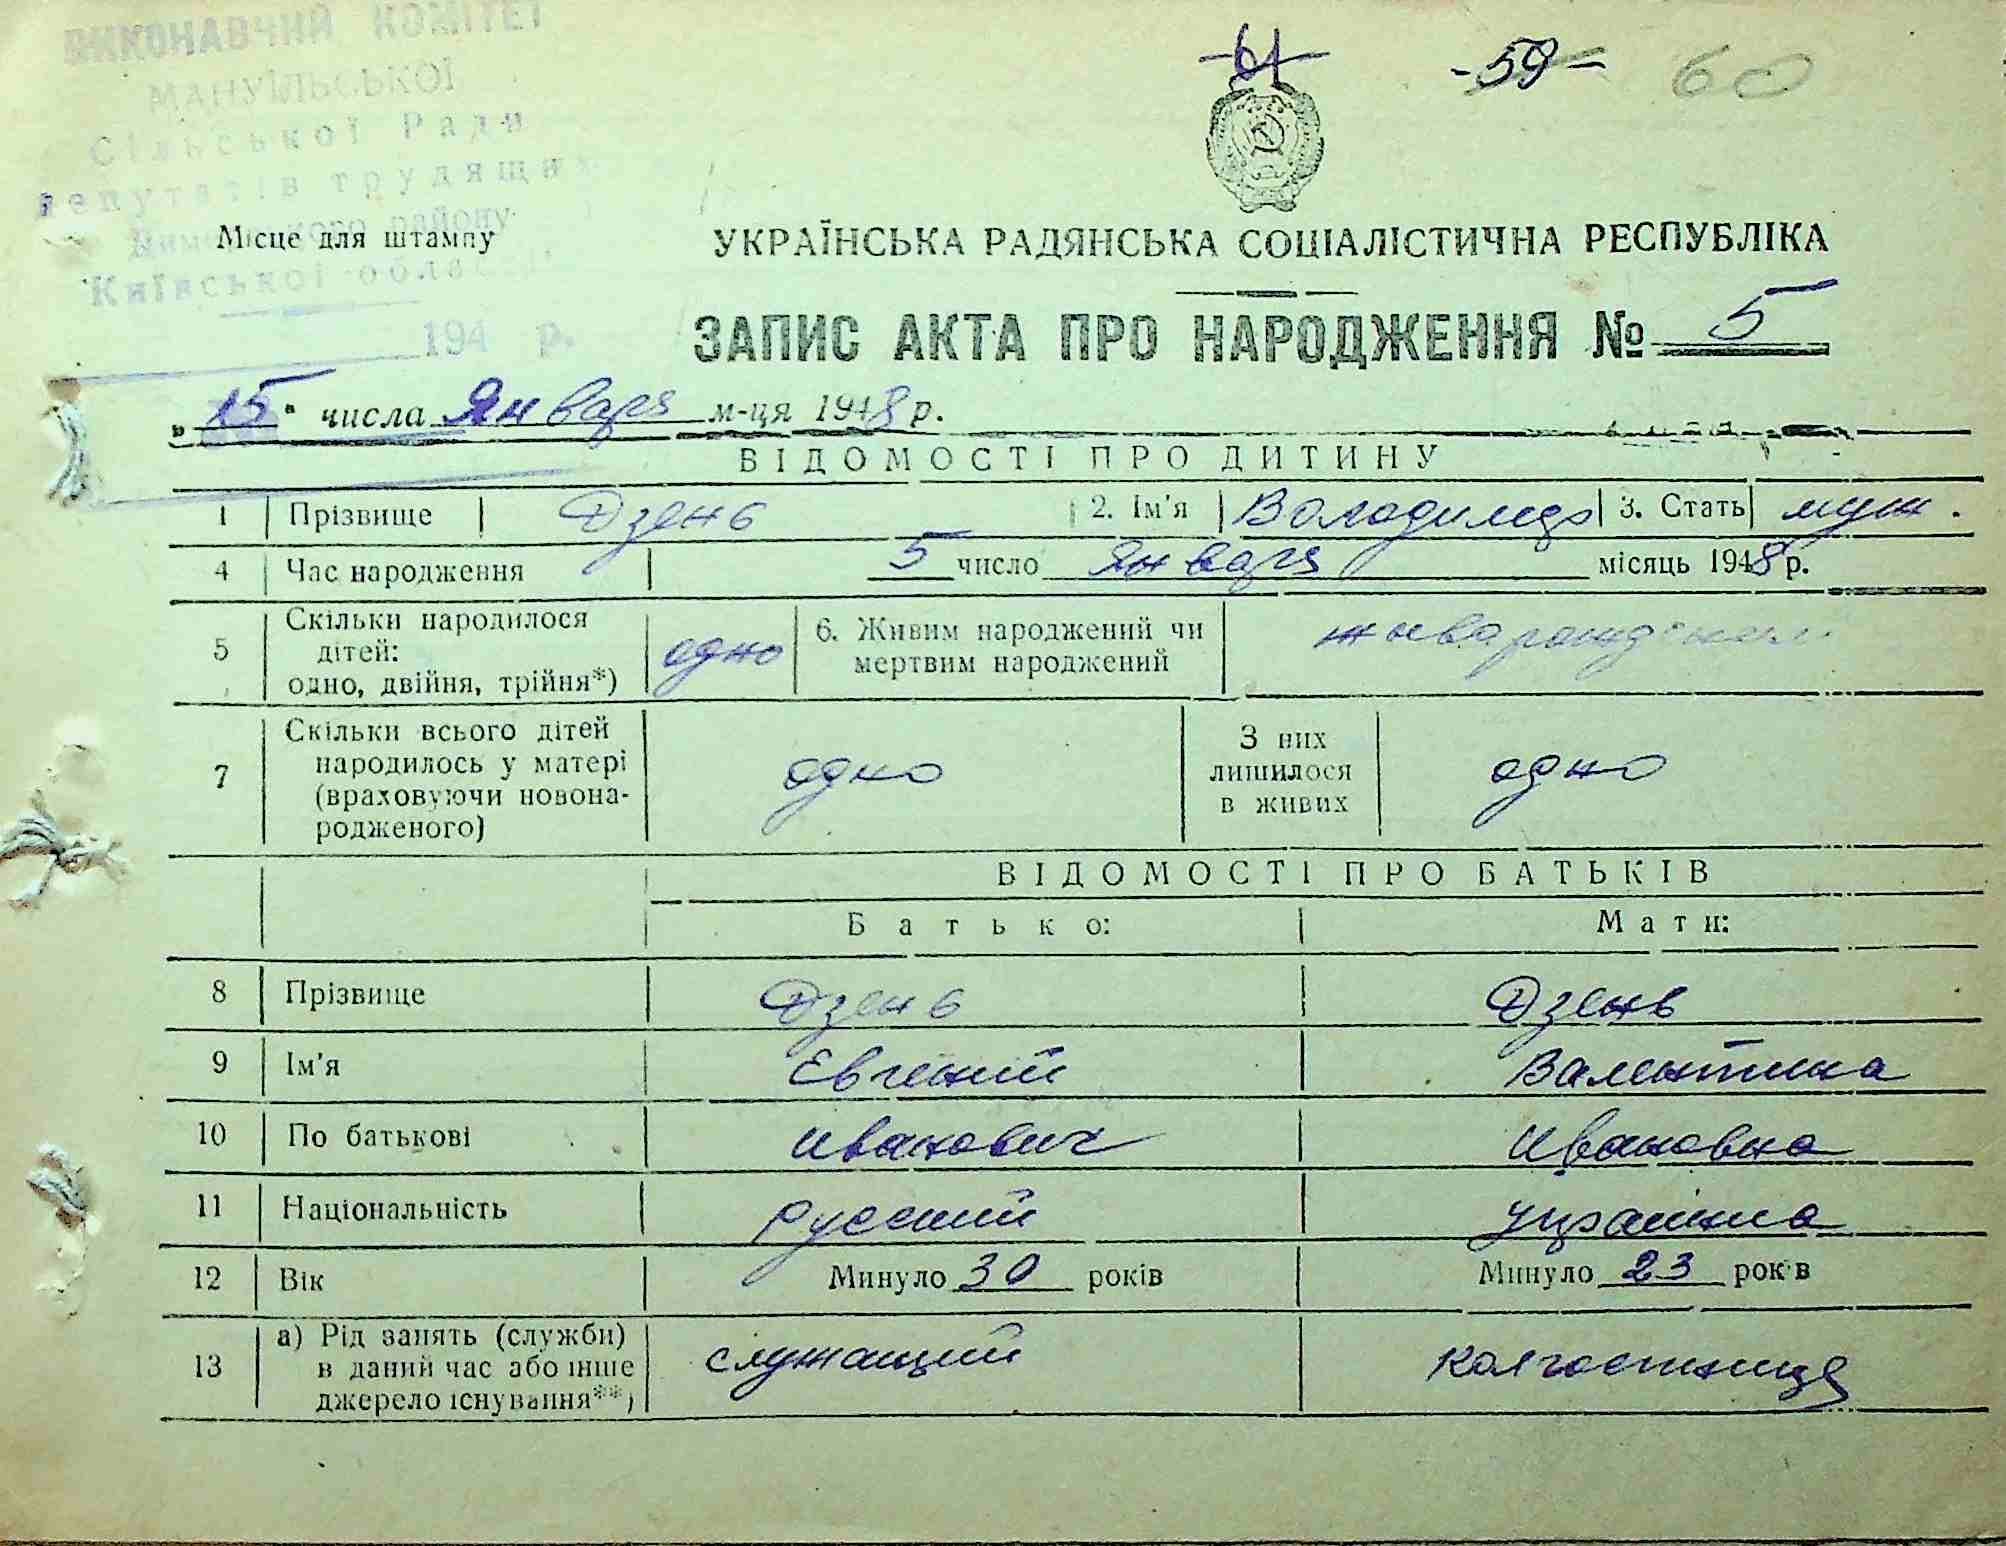 ВИКОНАВЧИЙ КОМІТЕТ
МАНУЇЛЬСЬКОЇ
Сільської Ради
депутатів трудящих
району
Київської області
194 р.
-61-
-59- 60
Місце для штампу
УКРАЇНСЬКА РАДЯНСЬКА СОЦІАЛІСТИЧНА РЕСПУБЛІКА
ЗАПИС АКТА ПРО НАРОДЖЕННЯ № 5
„ 15 “ числа Января м-ця 1948 р.
ВІДОМОСТІ ПРО ДИТИНУ
1 Прізвище Дзень 2. Ім'я Володимер 3. Стать муж.
4 Час народження 5 число Января місяць 1948 р.
5 Скільки народилося дітей: одно, двійня, трійня*) одно 6. Живим народжений чи мертвим народжений
7 Скільки всього дітей народилось у матері (враховуючи новонародженого) одно З них лишилося в живих одно
ВІДОМОСТІ ПРО БАТЬКІВ
Батько: Мати:
8 Прізвище Дзень Дзень
9 Ім'я Евгений Валентина
10 По батькові Иванович Ивановна
11 Національність Русский Українка
12 Вік Минуло 30 років Минуло 23 років
13 а) Рід занять (служби) в даний час або інше джерело існування**) служащий колгостница